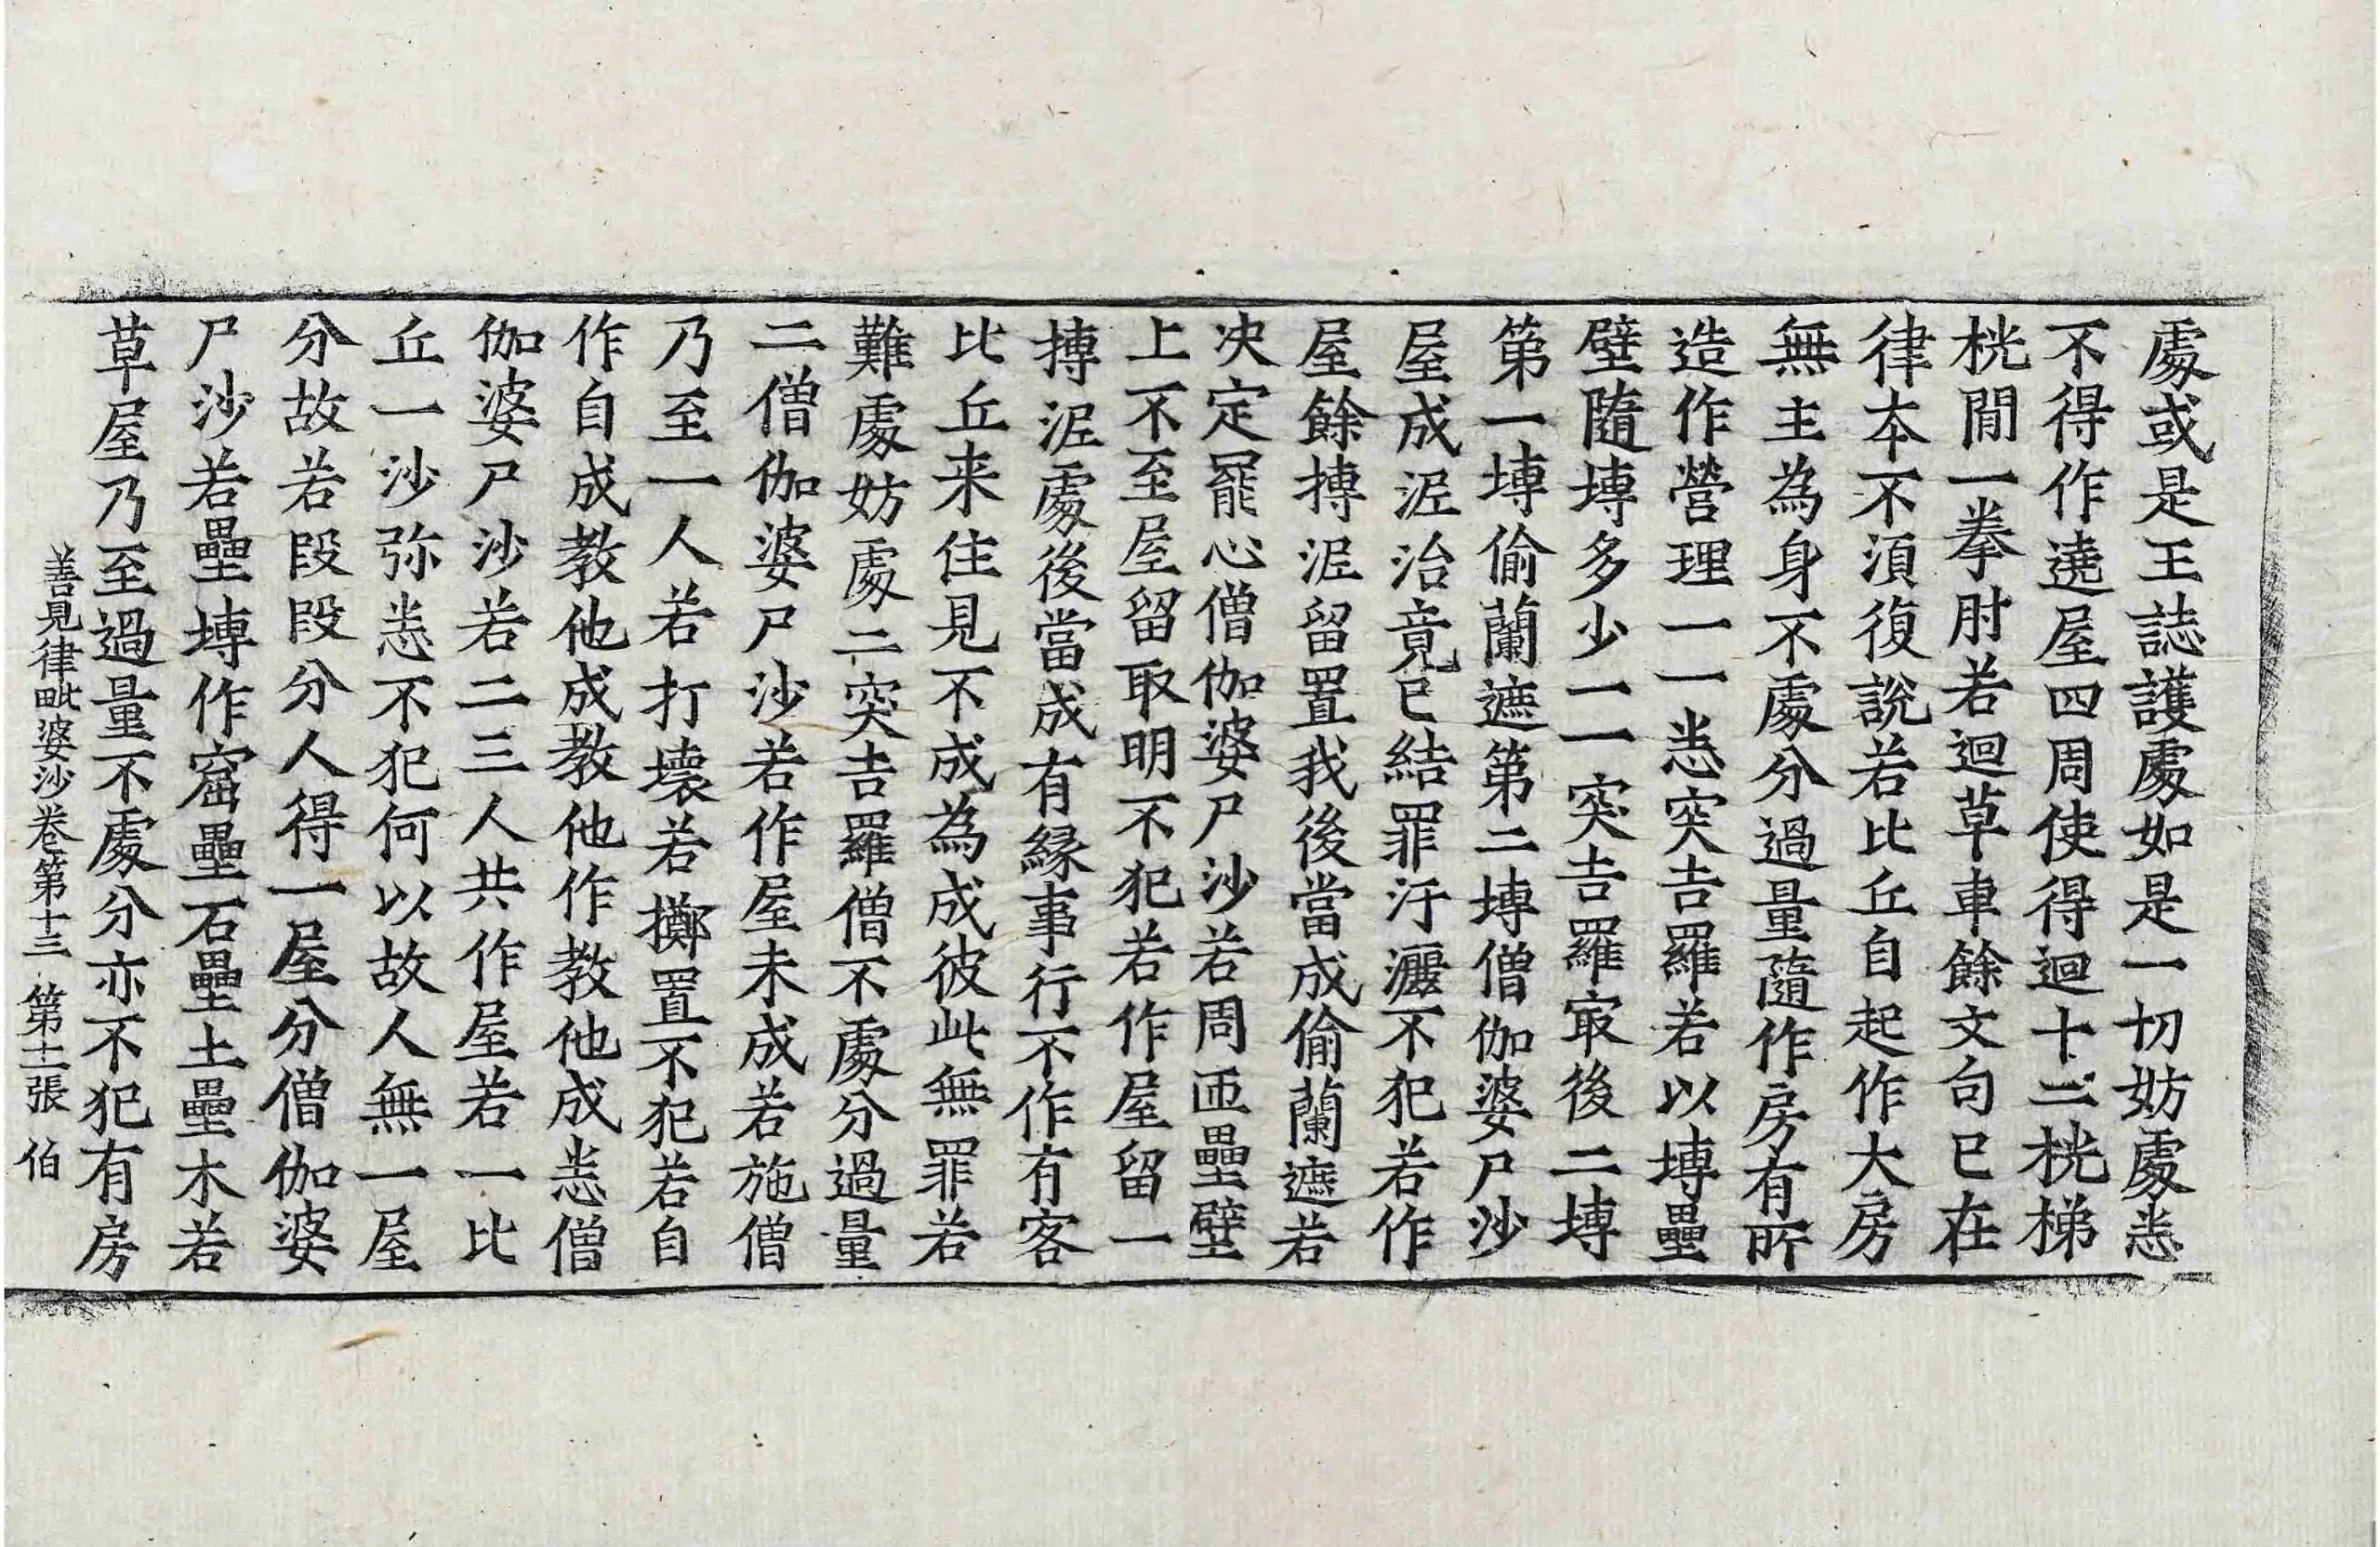 處或是王誌護處如是一切妨處恙
不得作遶屋四周使得迴十二桄梯
桄閒一拳肘若迴草車餘文句已在
律本不須復說若比丘自起作大房
無主為身不處分過量隨作房有所
造作營理一一恙突吉羅若以塼壘
壁隨塼多少一一突吉羅冣後二塼
第一塼偷蘭遮第二塼僧伽婆尸沙
屋成泥治竟已結罪汙灑不犯若作
屋餘摶泥留置我後當成偷蘭遮若
决定罷心僧伽婆尸沙若周迊壘壁
上不至屋留取明不犯若作屋留一
摶泥處後當成有緣事行不作有客
比丘来住見不成為成彼此無罪若
難處妨處二突吉羅僧不處分過量
二僧伽婆尸沙若作屋未成若施僧
乃至一人若打壞若擲置不犯若自
作自成教他成教他作教他成恙僧
伽婆尸沙若二三人共作屋若一比
丘一沙弥恙不犯何以故人無一屋
分故若段段分人得一屋分僧伽婆
尸沙若壘塼作窟壘石壘土壘木若
草屋乃至過量不處分亦不犯有房
善見律毗婆沙卷第十三 第十二張 伯